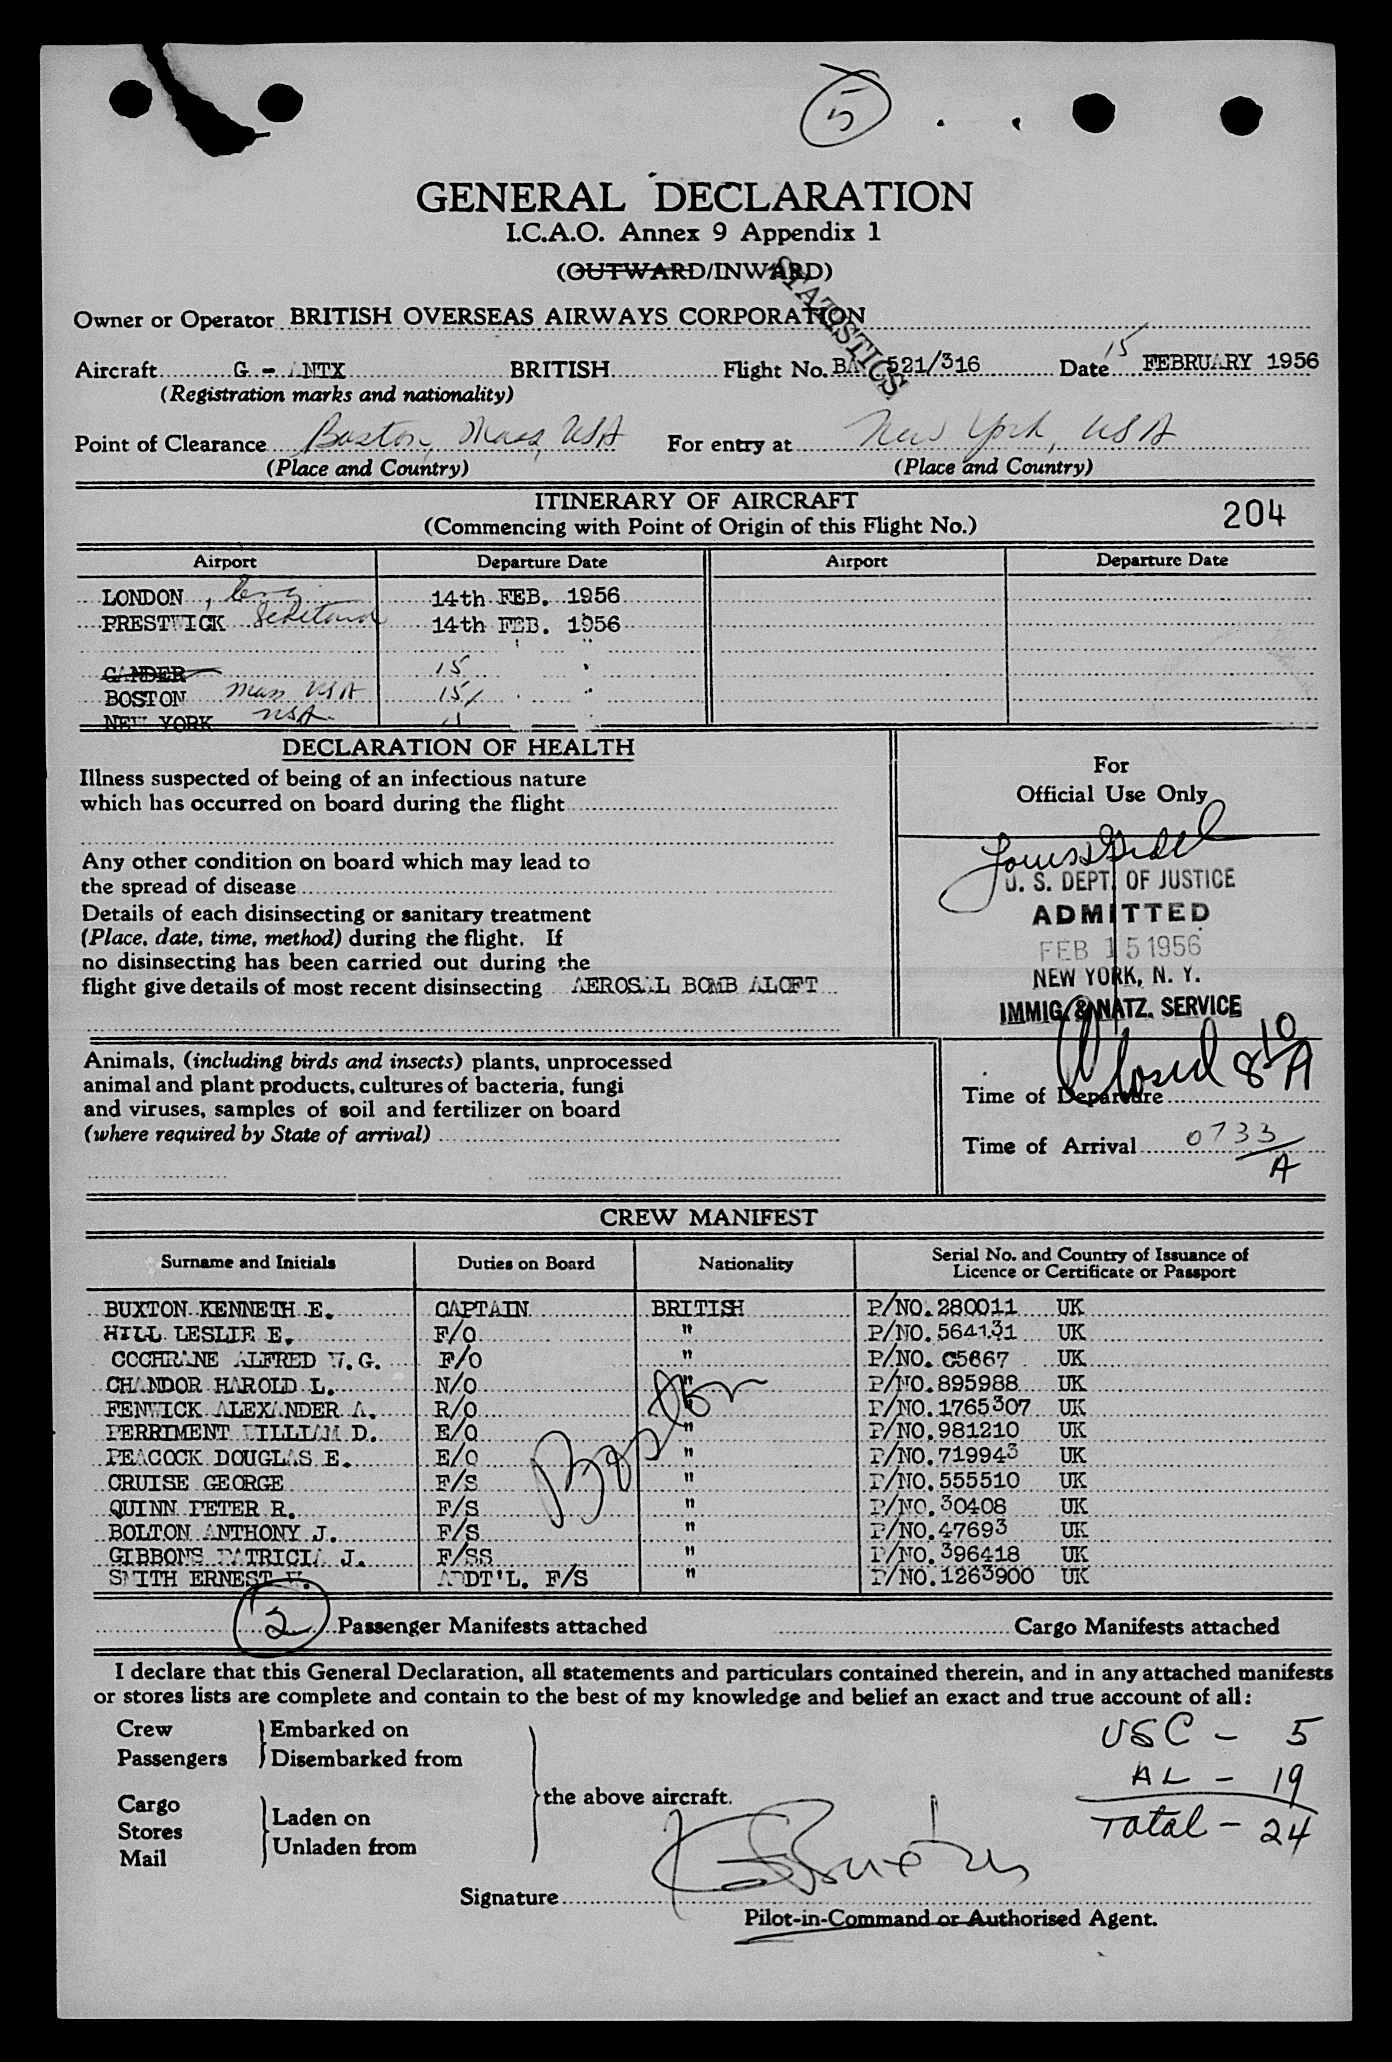 5
GENERAL DECLARATION
I.C.A.O. Annex 9 Appendix 1
(OUTWARD/INWARD)
STATISTICS
Owner or Operator BRITISH OVERSEAS AIRWAYS CORPORATION
Aircraft G - ANTX BRITISH Flight No. BA 521/316 Date 15 FEBRUARY 1956
(Registration marks and nationality)
Point of Clearance Boston, Mass, USA For entry at New York, USA
(Place and Country) (Place and Country)
ITINERARY OF AIRCRAFT
(Commencing with Point of Origin of this Flight No.) 204
Airport Departure Date Airport Departure Date
LONDON, 14th FEB. 1956
PRESTWICK Scotland 14th FEB. 1956
GANDER 15
BOSTON Mass USA 15
NEW YORK USA
DECLARATION OF HEALTH
Illness suspected of being of an infectious nature
which has occurred on board during the flight
Any other condition on board which may lead to
the spread of disease
Details of each disinsecting or sanitary treatment
(Place, date, time, method) during the flight. If
no disinsecting has been carried out during the
flight give details of most recent disinsecting AEROSAL BOMB ALOFT
For
Official Use Only
U. S. DEPT. OF JUSTICE
ADMITTED
FEB 15 1956
NEW YORK, N. Y.
IMMIG. & NATZ. SERVICE
Animals, (including birds and insects) plants, unprocessed
animal and plant products, cultures of bacteria, fungi
and viruses, samples of soil and fertilizer on board
(where required by State of arrival)
Closed 8 10 A
Time of Departure
Time of Arrival 0733 A
CREW MANIFEST
Surname and Initials Duties on Board Nationality Serial No. and Country of Issuance of
Licence or Certificate or Passport
BUXTON KENNETH E. CAPTAIN BRITISH P/NO. 280011 UK
HILL LESLIE E. F/O " P/NO. 564131 UK
COCHRANE ALFRED W.G. F/O " P/NO. C5667 UK
CHANDOR HAROLD L. N/O " P/NO. 895988 UK
FENWICK ALEXANDER A. R/O " P/NO. 1765307 UK
PERRIMENT WILLIAM D. E/O " P/NO. 981210 UK
PEACOCK DOUGLAS E. E/O " P/NO. 719943 UK
CRUISE GEORGE F/S " P/NO. 555510 UK
QUINN PETER R. F/S " P/NO. 30408 UK
BOLTON ANTHONY J. F/S " P/NO. 47693 UK
GIBBONS PATRICIA J. F/SS " P/NO. 396418 UK
SMITH ERNEST W. ADDT'L. F/S " P/NO. 1263900 UK
2 Passenger Manifests attached Cargo Manifests attached
I declare that this General Declaration, all statements and particulars contained therein, and in any attached manifests
or stores lists are complete and contain to the best of my knowledge and belief an exact and true account of all:
Crew Embarked on
Passengers Disembarked from
the above aircraft.
Cargo Laden on
Stores
Mail Unladen from
USC - 5
AL - 19
Total - 24
Signature K E Buxton
Pilot-in-Command or Authorised Agent.